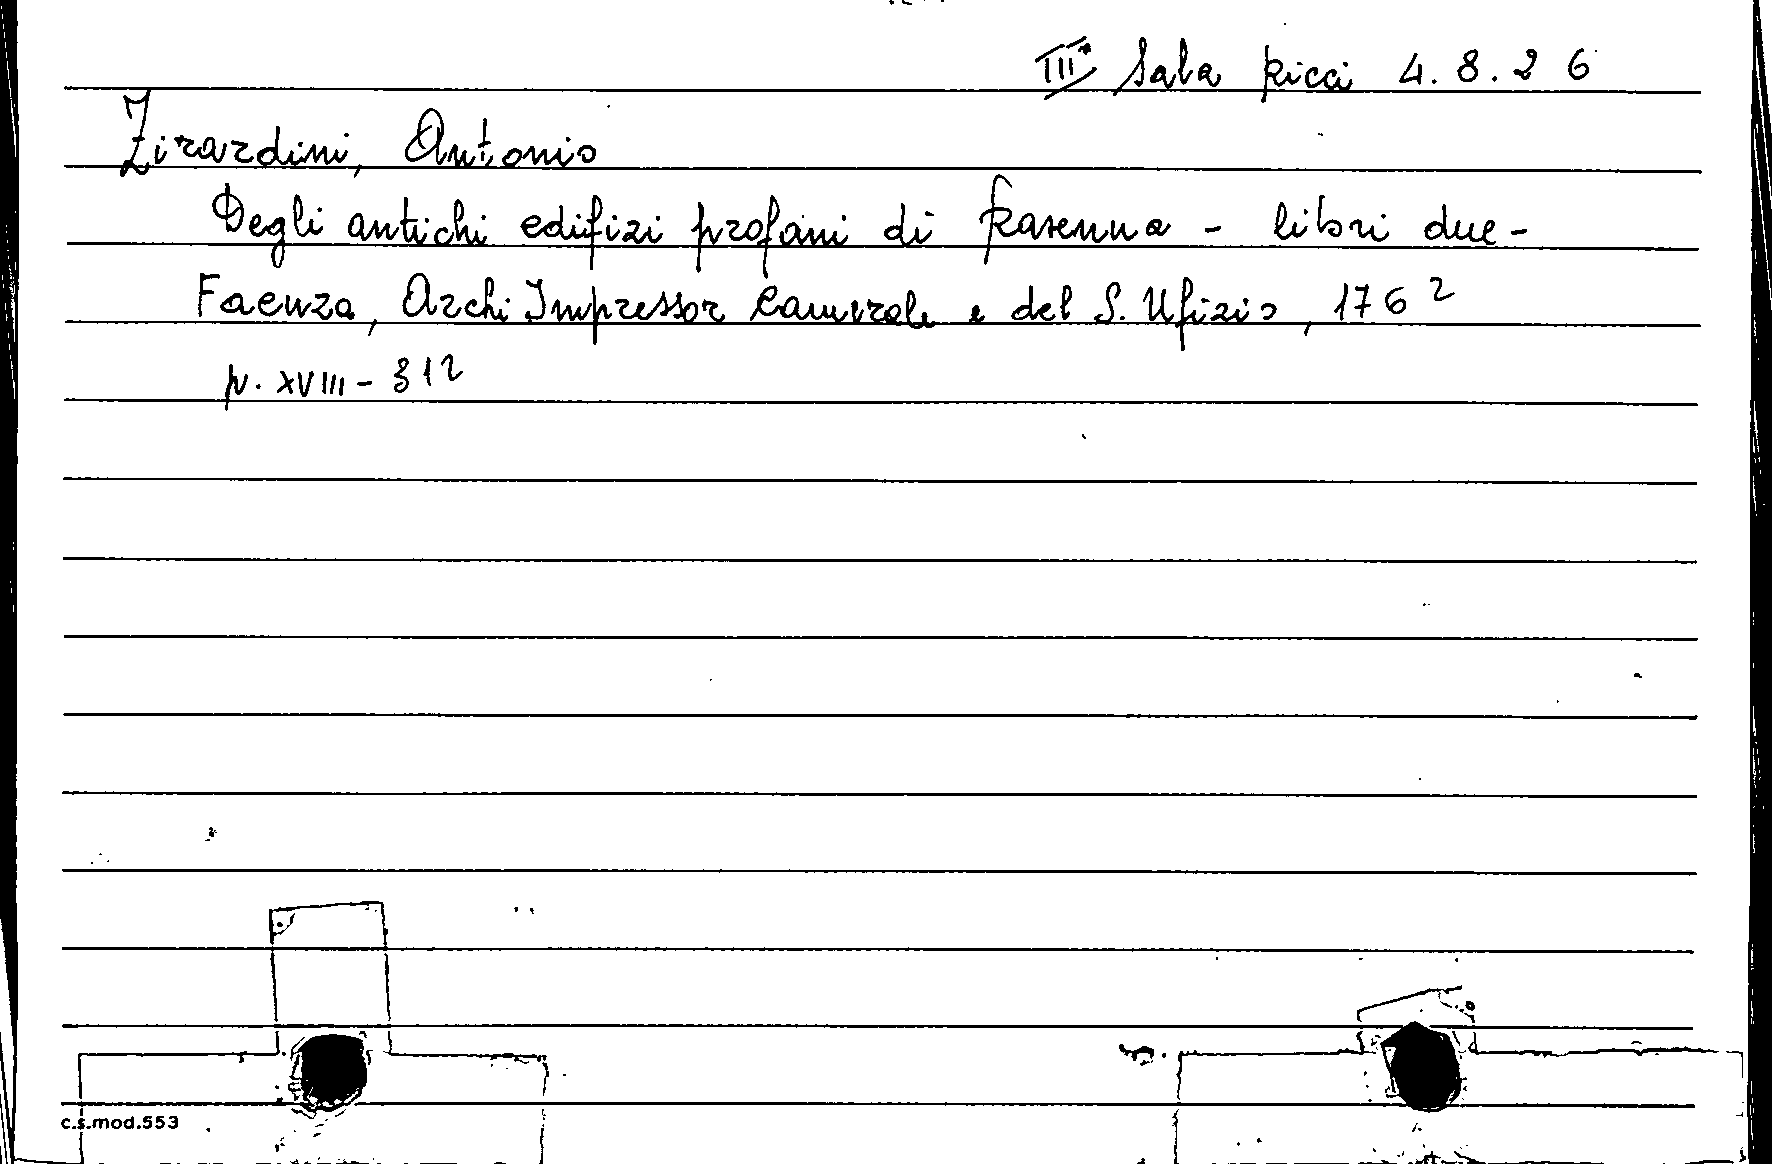 III* Sala Ricci 4.8.26
Zirardini, Antonio
Degli antichi edifizi profani di Ravenna - libri due -
Faenza, Archi Impressor Camerale e del S. Ufizio, 1762
p. XVIII - 312
c.s.mod.553